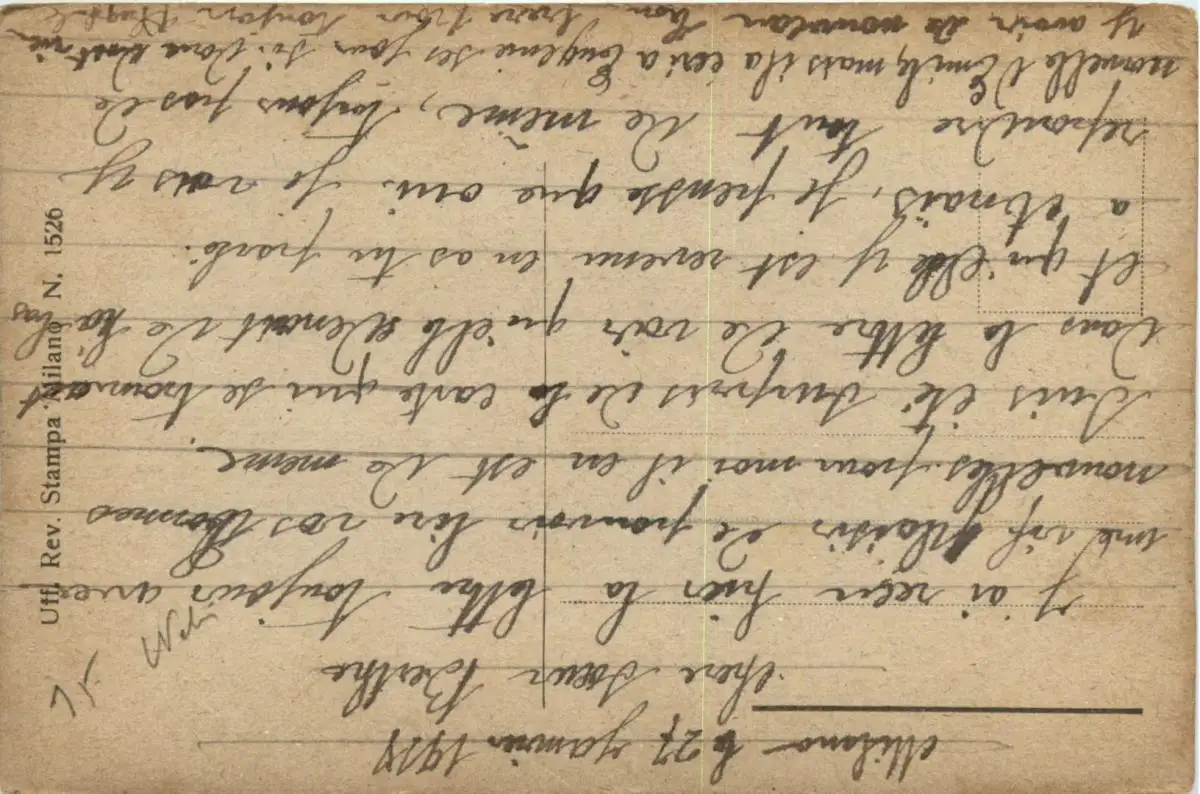 Milano le 27 Janvier 1918
chere sœur Berthe
J ai reçu hier ta lettre toujours avec
une vif plaisir de pouvoir lire vos bonnes
nouvelles. pour moi il en est de meme.
Suis été surpris de la carte qui se trouvait
dans la lettre de voir qu'elle venait de là bas
et qu'elle y est revenu en as tu parlé.
a Je pense que oui. Je vais y
repondre tout de même, toujours pas de
nouvelle d'Emile mais il a ecri a Eugenie ses jour
y avoir de nouveau
Uff. Rev. Stampa Milano N. 1526